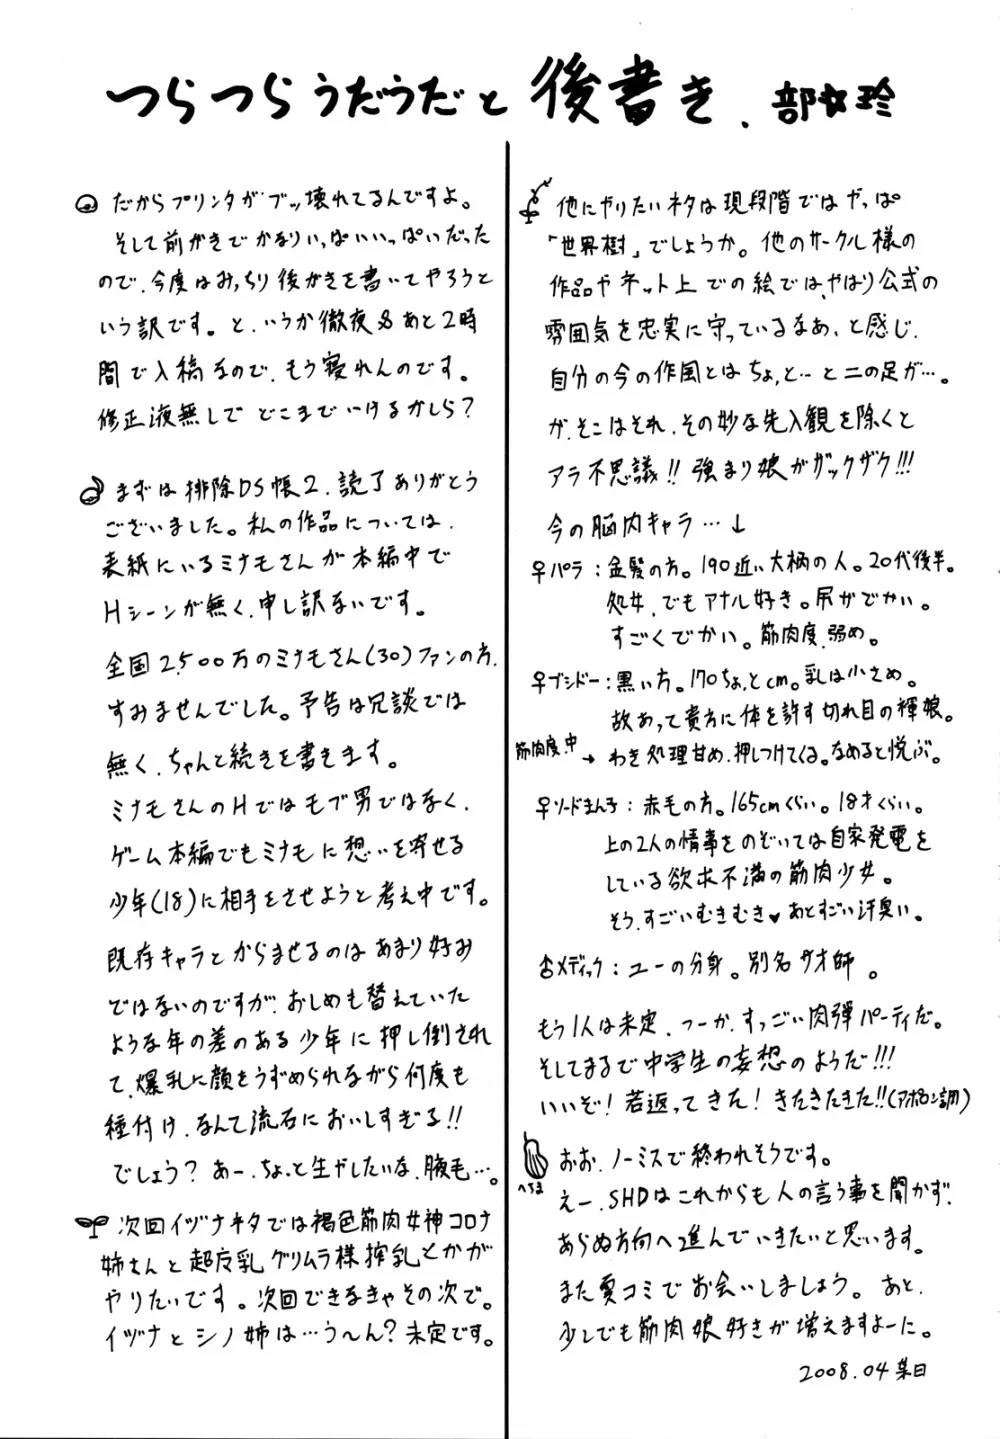 つらつらうだうだと後書き、部☆玲
だからプリンタがブッ壊れてるんですよ。
そして前がきでかなりいっぱいいっぱいだった
ので、今度はみっちり後がきを書いてやろうと
いう訳です。と、いうか徹夜&あと2時
間で入稿なので、もう寝れんのです。
修正液無しでどこまでいけるかしら?
まずは排除DS帳2、読了ありがとう
ございました。私の作品については、
表紙にいるミナモさんが本編中で
Hシーンが無く、申し訳ないです。
全国2,500万のミナモさん(30)ファンの方、
すみませんでした。予告は冗談では
無く、ちゃんと続きを書きます。
ミナモさんのHではモブ男ではなく、
ゲーム本編でもミナモに想いを寄せる
少年(18)に相手をさせようと考え中です。
既存キャラとからませるのはあまり好み
ではないのですが、おしめも替えていた
ような年の差のある少年に押し倒され
て、爆乳に顔をうずめられながら何度も
種付け、なんて流石においしすぎる!!
でしょう?あー、ちょっと生やしたいな、腋毛…。
次回イヅナネタでは褐色筋肉女神コロナ
姉さんと超反乳グリムラ様搾乳とかが
やりたいです。次回できなきゃその次で。
イヅナとシノ姉は…う〜ん?未定です。
他にやりたいネタは現段階ではやっぱ
「世界樹」でしょうか。他のサークル様の
作品やネット上での絵では、やはり公式の
雰囲気を忠実に守っているなあ、と感じ、
自分の今の作風とはちょっと…と二の足が…。
が、そこはそれ、その妙な先入観を除くと
アラ不思議!!強まり娘がザックザク!!!
今の脳内キャラ…↓
♀パラ:金髪の方。190近い大柄の人。20代後半。
処女、でもアナル好き。尻がでかい。
すごくでかい。筋肉度、弱め。
♀ブシドー:黒い方。170ちょっとcm。乳は小さめ。
故あって貴方に体を許す切れ目の褌娘。
筋肉度、中 → わき処理甘め、押しつけてくる。なめると悦ぶ。
♀ソードまん子:赤毛の方。165cmくらい。18才くらい。
上の2人の情事をのぞいては自家発電を
している欲求不満の筋肉少女。
そう、すごいむきむき♥あとすごい汗臭い。
♂メディック:ユーの分身。別名サオ師。
もう1人は未定、つーか、すっごい肉弾パーティだ。
そしてまるで中学生の妄想のようだ!!!
いいぞ!若返ってきた!きたきたきた!!(アポロン調)
へちま
おお、ノーミスで終われそうです。
えー、SHDはこれからも人の言う事を聞かず、
あらぬ方向へ進んでいきたいと思います。
また夏コミでお会いしましょう。あと、
少しでも筋肉娘好きが増えますよーに。
2008.04某日